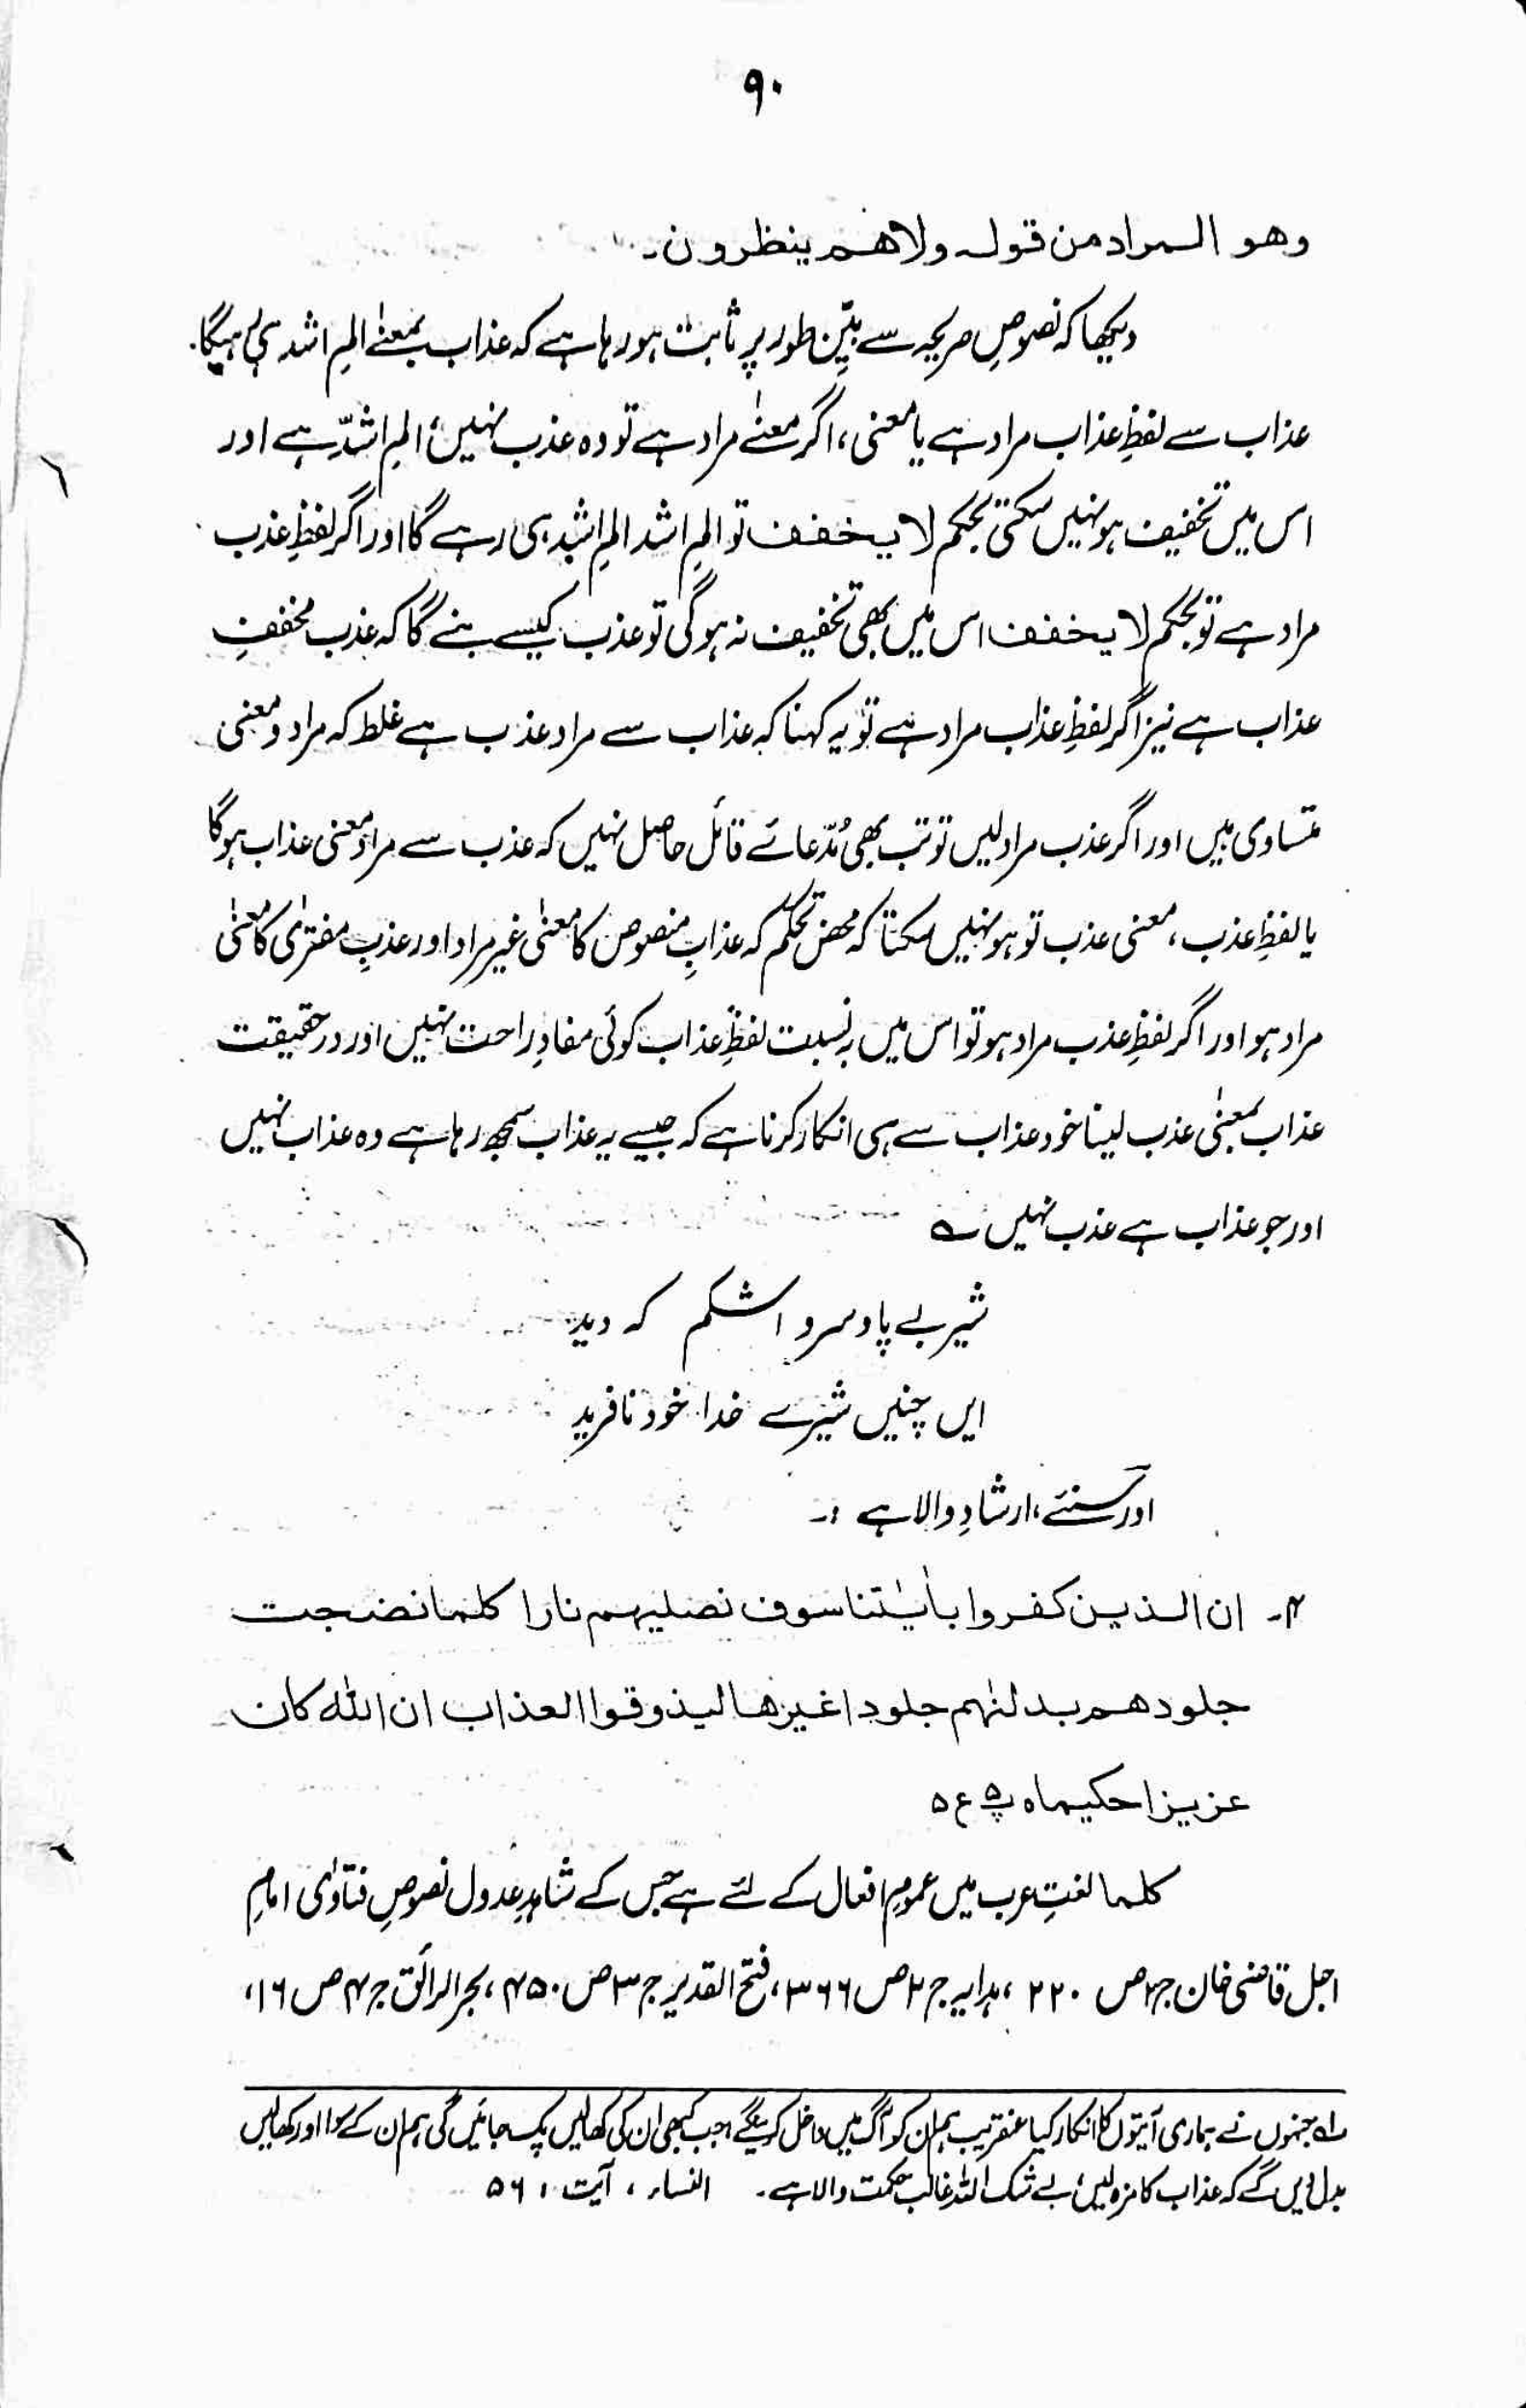 ۹۰
وهو المراد من قوله ولاهم ينظرون۔
دیکھا کہ نصوصِ صریحہ سے بیّن طور پر ثابت ہو رہا ہے کہ عذاب بمعنے المِ اشد ہی رہیگا۔
عذاب سے لفظِ عذاب مراد ہے یا معنی، اگر معنے مراد ہے تو وہ عذب نہیں، المِ اشدّ ہے اور
اس میں تخفیف ہو نہیں سکتی بحکم لا یخفف تو المِ اشد المِ اشد ہی رہے گا اور اگر لفظِ عذب
مراد ہے تو بحکم لا یخفف اس میں بھی تخفیف نہ ہوگی تو عذب کیسے بنے گا کہ عذب مخففِ
عذاب ہے نیز اگر لفظِ عذاب مراد ہے تو یہ کہنا کہ عذاب سے مراد عذب ہے غلط کہ مراد و معنی
متساوی ہیں اور اگر عذب مراد لیں تو تب بھی مُدّعائے قائل حاصل نہیں کہ عذب سے مراد معنی عذاب ہوگا
یا لفظِ عذب، معنی عذب تو ہو نہیں سکتا کہ محض تحکّم کہ عذابِ منصوص کا معنیٰ غیر مراد اور عذبِ مفتریٰ کا معنیٰ
مراد ہو اور اگر لفظِ عذب مراد ہو تو اس میں بہ نسبت لفظِ عذاب کوئی مفادِ راحت نہیں اور در حقیقت
عذاب بمعنیٰ عذب لینا خود عذاب سے ہی انکار کرنا ہے کہ جسے یہ عذاب سمجھ رہا ہے وہ عذاب نہیں
اور جو عذاب ہے عذب نہیں ؎
شیر بے پا و سر و اشکم کہ دید
ایں چنیں شیرے خدا خود نافرید
اور سنئے، ارشادِ والا ہے :۔
۴۔ ان الذین کفروا باٰیٰتنا سوف نصلیهم نارا کلما نضجت
جلودهم بدلنٰهم جلودا غیرها لیذوقوا العذاب ان الله کان
عزیزا حکیما ہ پ۵ ع ۵
کلما لغتِ عرب میں عمومِ افعال کے لئے ہے جس کے شاہدِ عدول نصوصِ فتاوٰی امامِ
اجل قاضی خان ج۲ ص ۲۲۰، ہدایہ ج ۲ ص ۳۶۶، فتح القدیر ج ۳ ص ۴۵۰، بحر الرائق ج ۴ ص ۱۶،
؎۱ جنہوں نے ہماری آیتوں کا انکار کیا عنقریب ہم ان کو آگ میں داخل کریں گے، جب کبھی ان کی کھالیں پک جائیں گی ہم ان کے سوا اور کھالیں
بدل دیں گے کہ عذاب کا مزہ لیں، بے شک اللہ غالب حکمت والا ہے۔ النساء، آیت : ۵۶